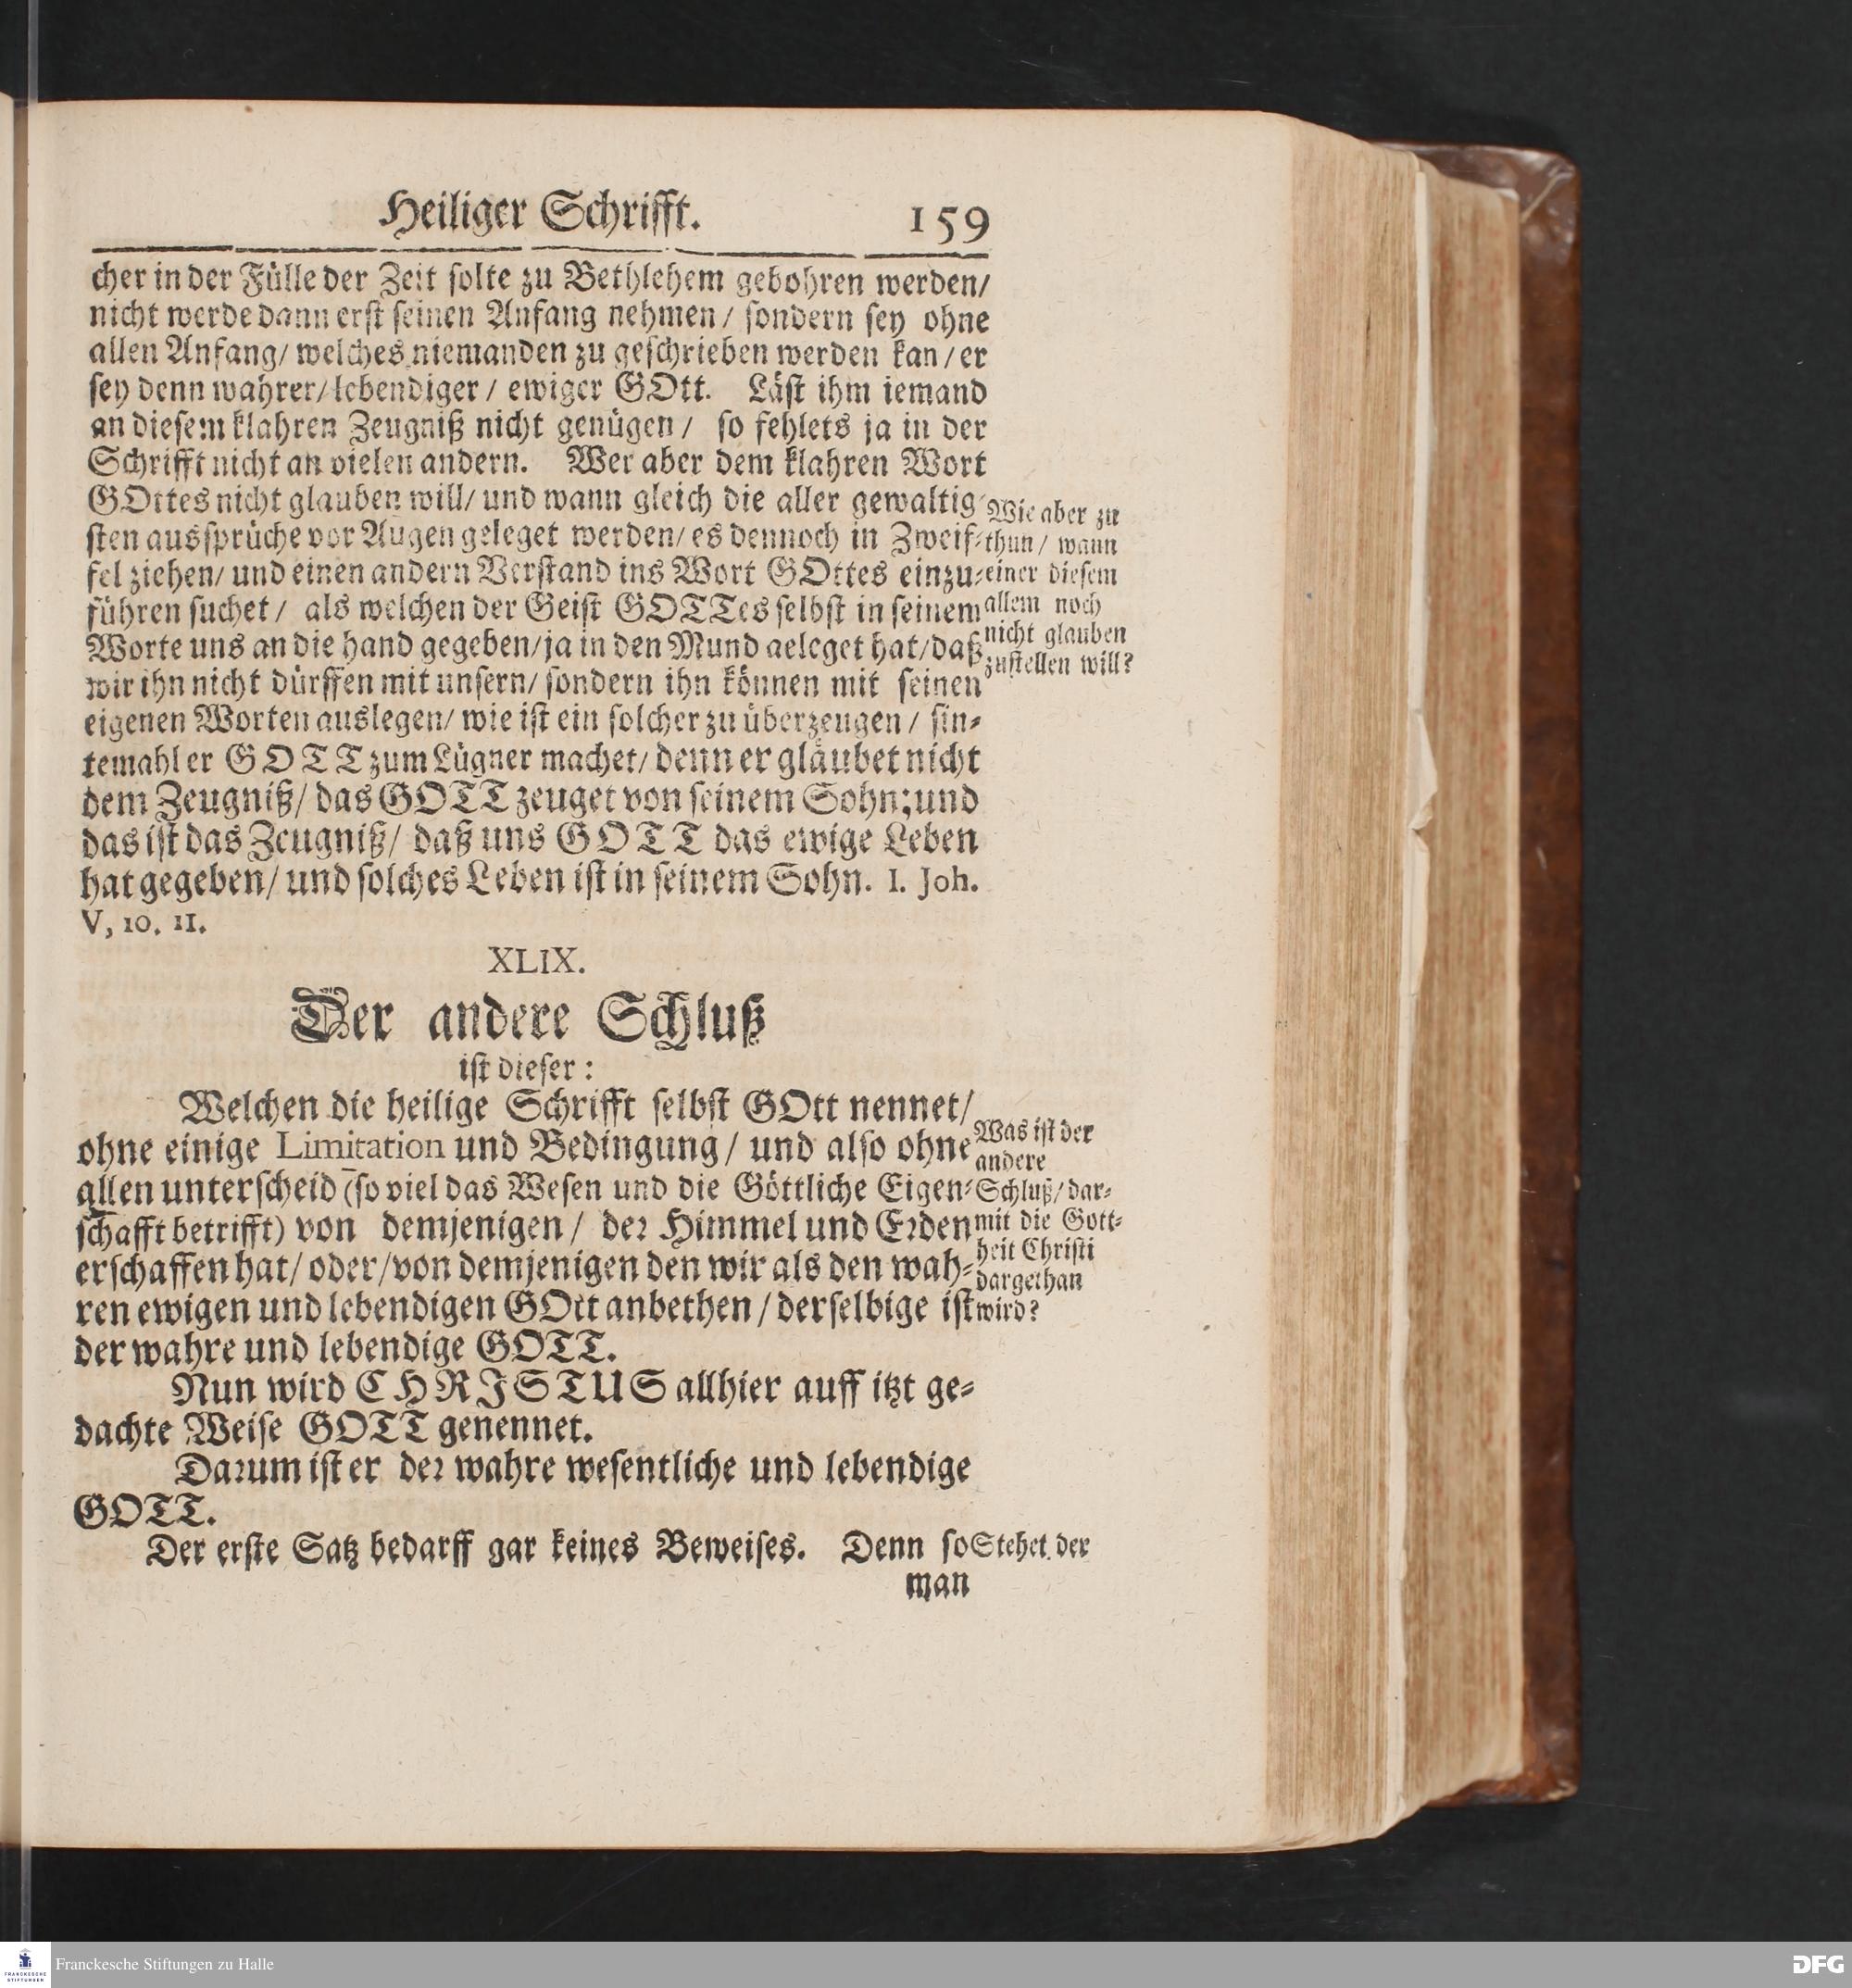 Heiliger Schrifft. 159
cher in der Fülle der Zeit solte zu Bethlehem gebohren werden/
nicht werde dann erst seinen Anfang nehmen/ sondern sey ohne
allen Anfang/ welches niemanden zu geschrieben werden kan/ er
sey denn wahrer/ lebendiger/ ewiger GOtt. Läst ihm iemand
an diesem klahren Zeugniß nicht genügen/ so fehlets ja in der
Schrifft nicht an vielen andern. Wer aber dem klahren Wort
GOttes nicht glauben will/ und wann gleich die aller gewaltig-
sten aussprüche vor Augen geleget werden/ es dennoch in Zweif-
fel ziehen/ und einen andern Verstand ins Wort GOttes einzu-
führen suchet/ als welchen der Geist GOTTes selbst in seinem
Worte uns an die hand gegeben/ ja in den Mund geleget hat/ daß
wir ihn nicht dürffen mit unsern/ sondern ihn können mit seinen
eigenen Worten auslegen/ wie ist ein solcher zu überzeugen/ sin-
temahl er GOTT zum Lügner machet/ denn er gläubet nicht
dem Zeugniß/ das GOTT zeuget von seinem Sohn; und
das ist das Zeugniß/ daß uns GOTT das ewige Leben
hat gegeben/ und solches Leben ist in seinem Sohn. I. Joh.
V, 10. 11.
Wie aber zu
thun/ wann
einer diesem
allem noch
nicht glauben
zustellen will?
XLIX.
Der andere Schluß
ist dieser:
Welchen die heilige Schrifft selbst GOtt nennet/
ohne einige Limitation und Bedingung/ und also ohne
allen unterscheid (so viel das Wesen und die Göttliche Eigen-
schafft betrifft) von demjenigen/ der Himmel und Erden
erschaffen hat/ oder/ von demjenigen den wir als den wah-
ren ewigen und lebendigen GOtt anbethen/ derselbige ist
der wahre und lebendige GOTT.
Was ist der
andere
Schluß/ dar-
mit die Gott-
heit Christi
dargethan
wird?
Nun wird CHRISTUS allhier auff itzt ge-
dachte Weise GOTT genennet.
Darum ist er der wahre wesentliche und lebendige
GOTT.
Der erste Satz bedarff gar keines Beweises. Denn so
Stehet der
man
Franckesche Stiftungen zu Halle
FRANCKESCHE
STIFTUNGEN
DFG